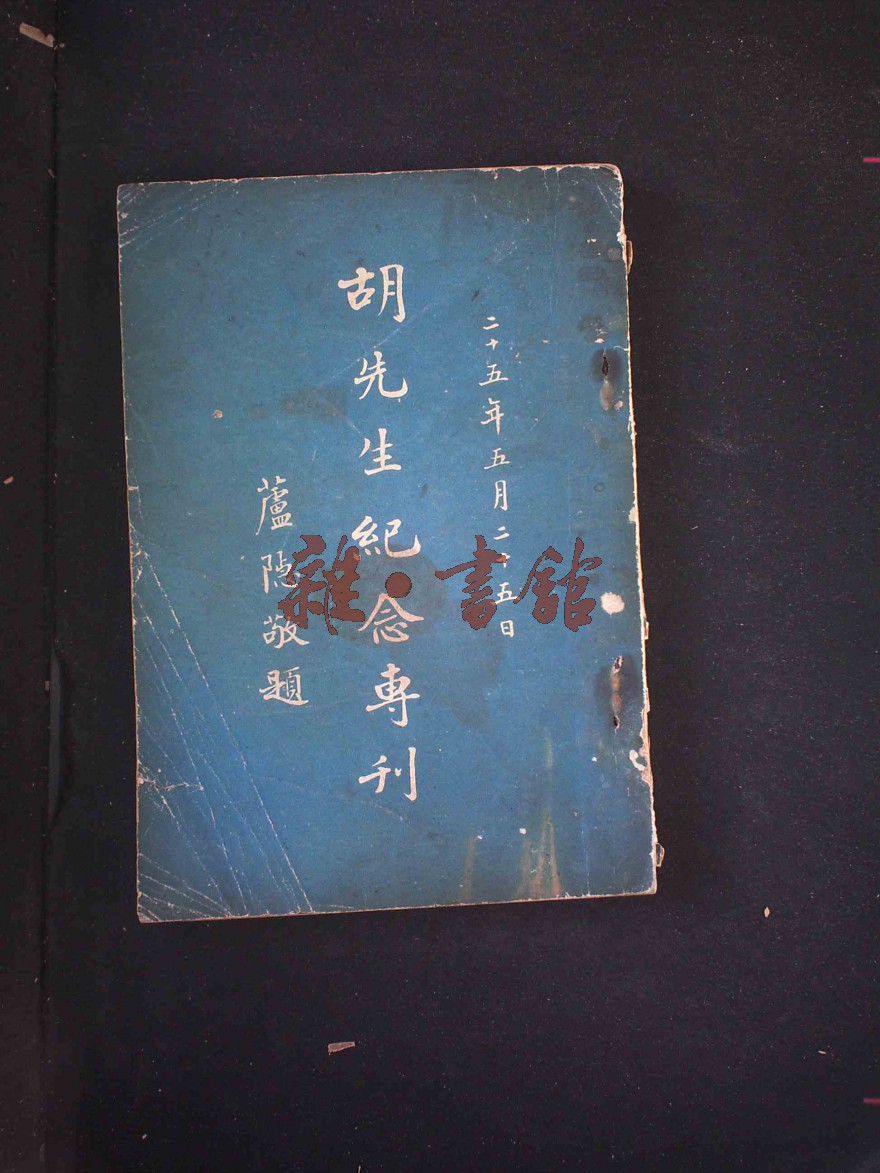 二十五年五月二十五日
胡先生紀念專刊
蘆隱敬題
雜·書館